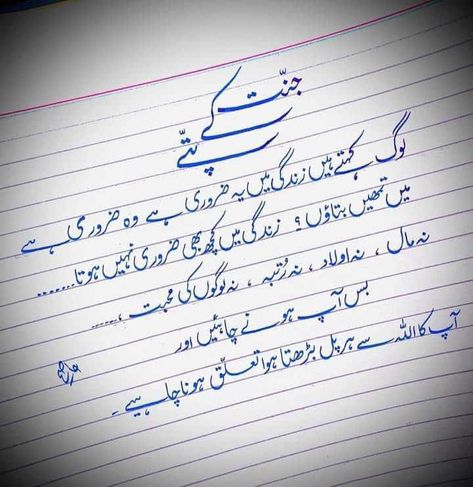 جنّت
کے
پتّے
لوگ کہتے ہیں زندگی میں یہ ضروری ہے وہ ضروری ہے
میں تمھیں بتاؤں؟ زندگی میں کچھ بھی ضروری نہیں ہوتا........
نہ مال ، نہ اولاد ، نہ رُتبہ ، نہ لوگوں کی محبت ، ......
بس آپ ہونے چاہئیں اور
آپ کا اللہ سے ہر پل بڑھتا ہوا تعلّق ہونا چاہیے ۔